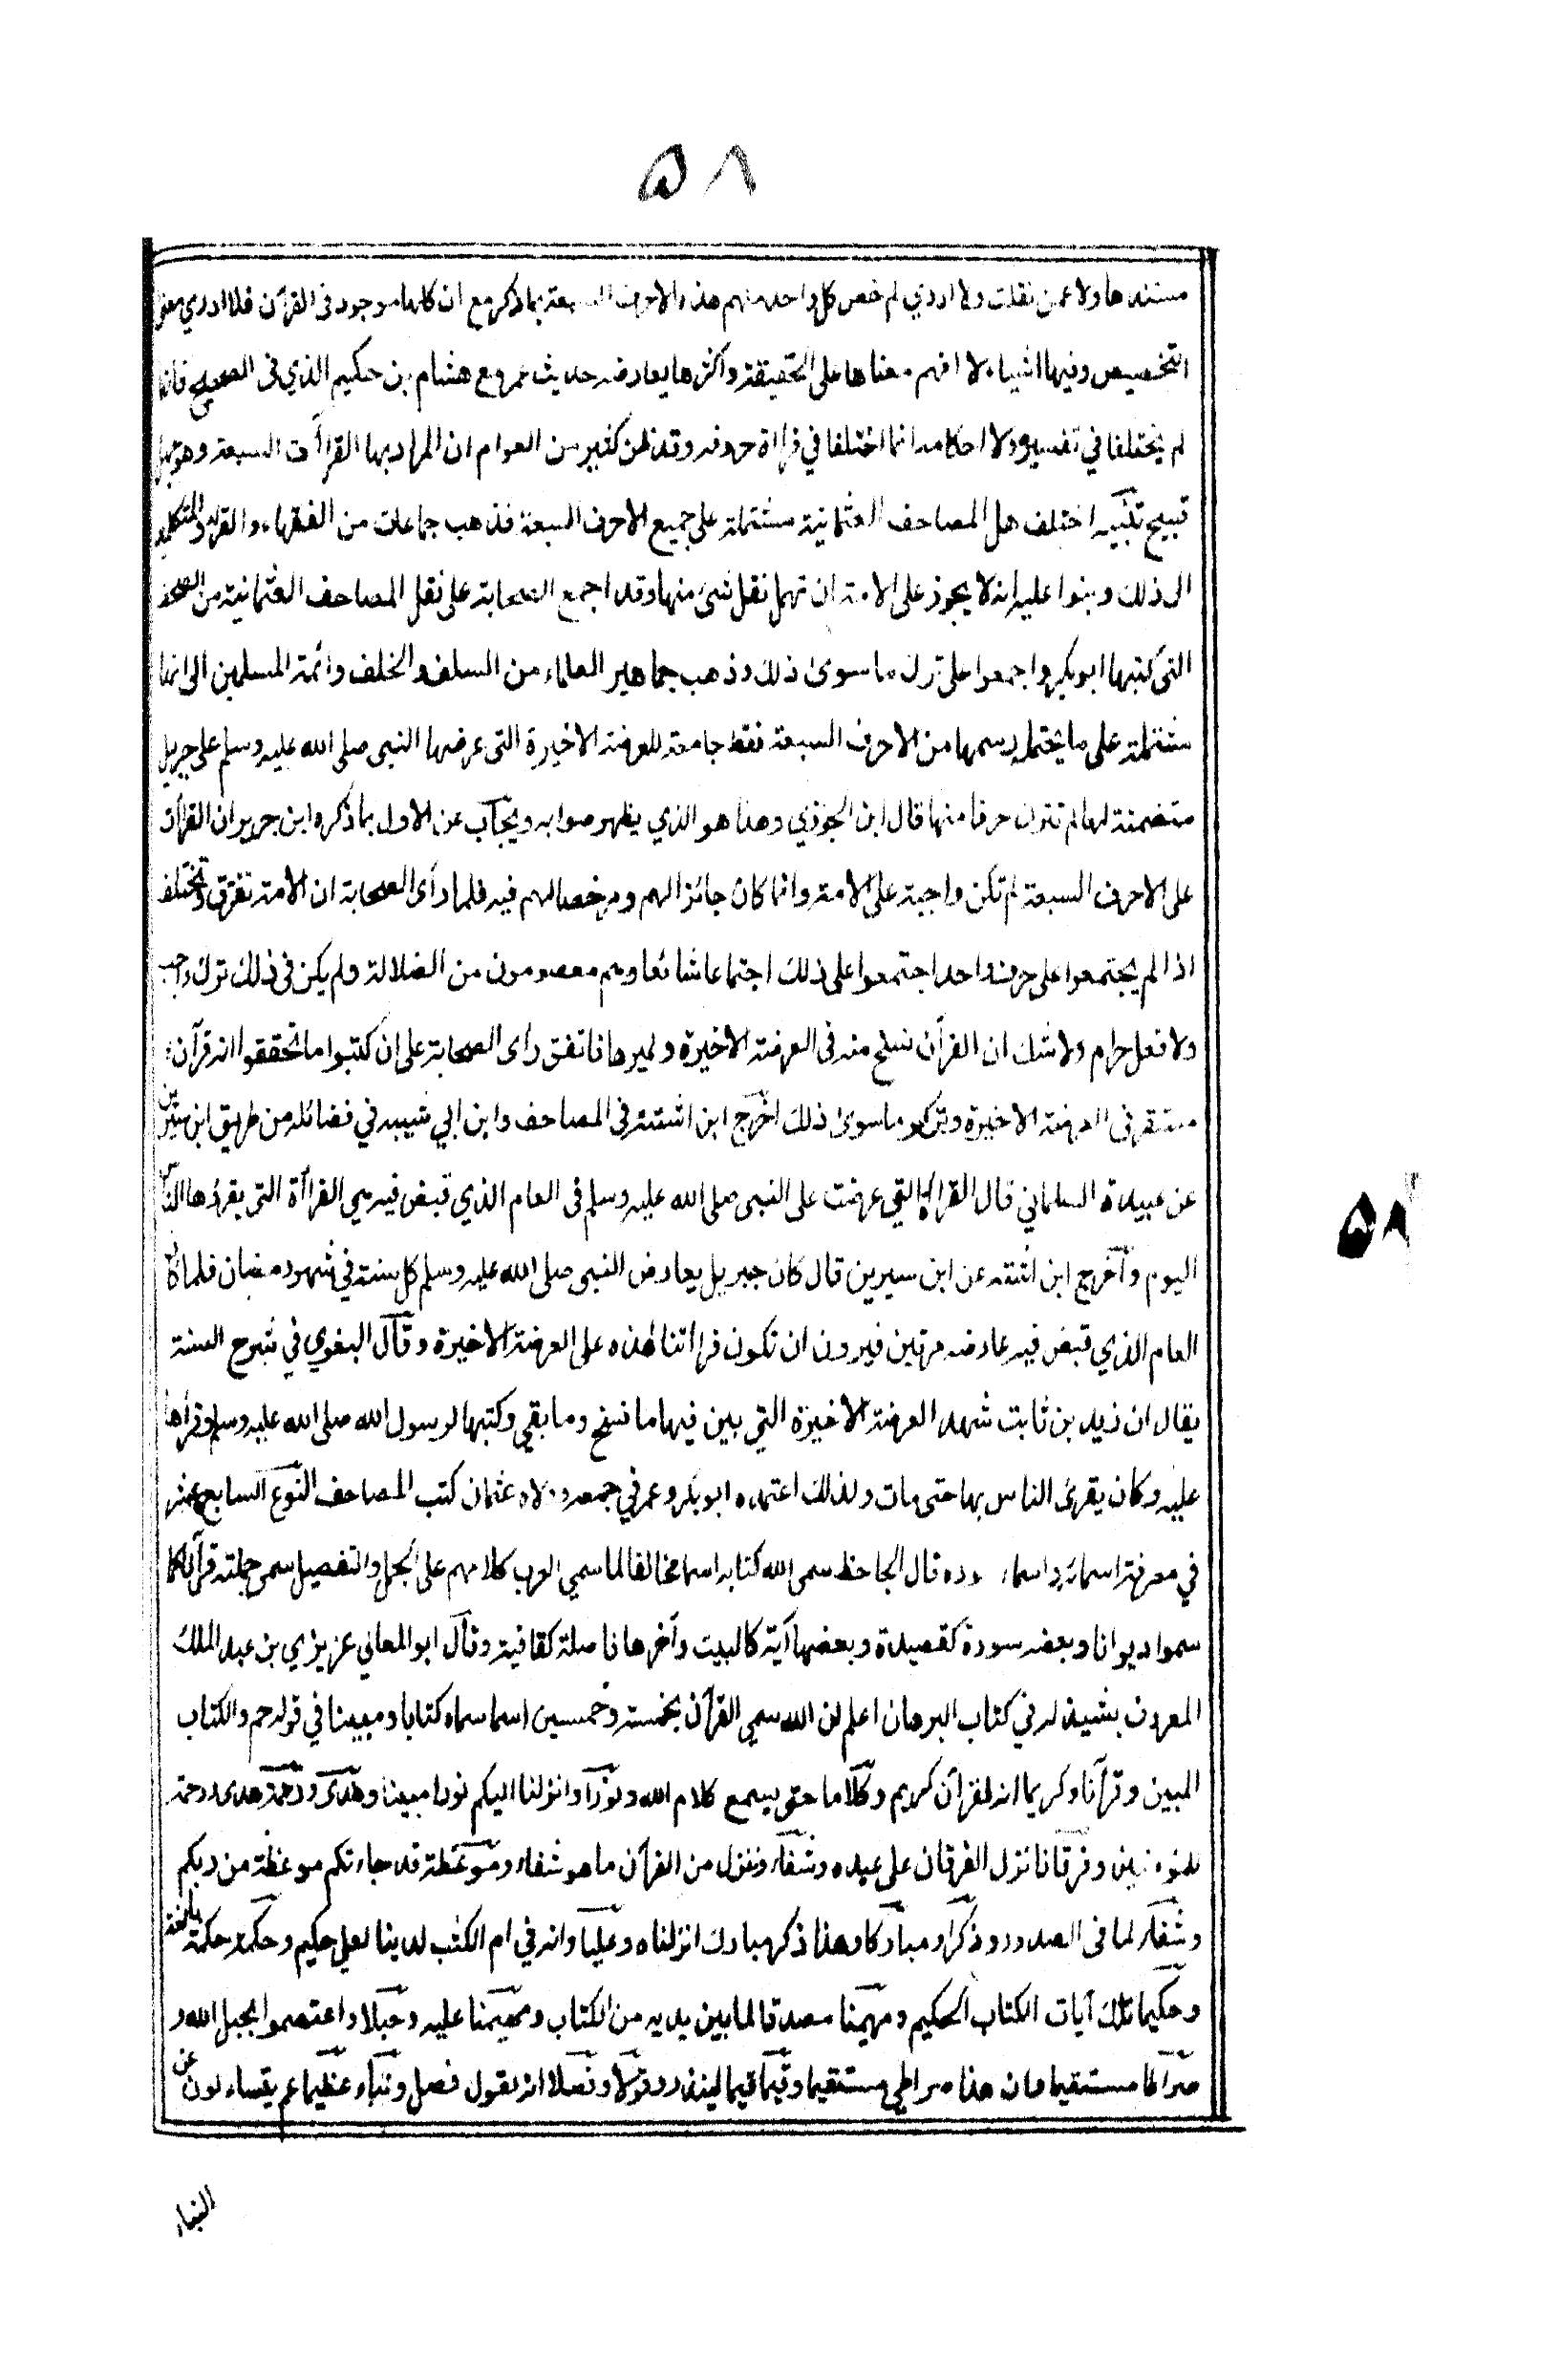 ۵۸
مستندها ولا عمن نقلت ولا ادري لم خص كل واحد منهم هذه الاحرف السبعة بما ذكر مع ان كلها موجود فى القرآن فلا ادري معنى
التخصيص وفيها اشياء لا افهم معناها على الحقيقة واكثرها يعارضه حديث عمر مع هشام بن حكيم الذي فى الصحيح فانهما
لم يختلفا في تفسيره ولا احكامه انما اختلفا في قراءة حروفه وقد ظن كثير من العوام ان المراد بها القراآت السبعة وهو جهل
قبيح تنبيه اختلف هل المصاحف العثمانية مشتملة على جميع الاحرف السبعة فذهب جماعات من الفقهاء والقراء والمتكلمين
الى ذلك وبنوا عليه انه لا يجوز على الامة ان تهمل نقل شئ منها وقد اجمع الصحابة على نقل المصاحف العثمانية من الصحف
التى كتبها ابوبكر واجمعوا على ترك ما سوى ذلك وذهب جماهير العلماء من السلف والخلف وائمة المسلمين الى انها
مشتملة على ما يحتمل رسمها من الاحرف السبعة فقط جامعة للعرضة الاخيرة التى عرضها النبى صلى الله عليه وسلم على جبريل
متضمنة لها لم تترك حرفا منها قال ابن الجوزي وهذا هو الذي يظهر صوابه ويجاب عن الاول بما ذكره ابن جرير ان القراءة
على الاحرف السبعة لم تكن واجبة على الامة وانما كان جائزا لهم ومرخصا لهم فيه فلما رأى الصحابة ان الامة تفترق وتختلف
اذا لم يجتمعوا على حرف واحد اجتمعوا على ذلك اجتماعا شائعا وهم معصومون من الضلالة ولم يكن فى ذلك ترك واجب
ولا فعل حرام ولا شك ان القرآن نسخ منه فى العرضة الاخيرة وغير ها فاتفق رأى الصحابة على ان كتبوا ما تحققوا انه قرآن
مستقر فى العرضة الاخيرة وتركوا ما سوى ذلك اخرج ابن اشتة فى المصاحف وابن ابي شيبه في فضائله من طريق ابن سيرين
عن عبيدة السلماني قال القراءة التي عرضت على النبى صلى الله عليه وسلم فى العام الذي قبض فيه هي القراآة التى يقرؤها الناس
اليوم وأخرج ابن اشته عن ابن سيرين قال كان جبريل يعارض النبى صلى الله عليه وسلم كل سنة في شهر رمضان فلما كان
العام الذي قبض فيه عارضه مرتين فيرون ان تكون قراءتنا هذه على العرضة الاخيرة وقال البغوي في شرح السنة
يقال ان زيد بن ثابت شهد العرضة الاخيرة التي بين فيها ما نسخ وما بقي وكتبها لرسول الله صلى الله عليه وسلم وقرأها
عليه وكان يقرئ الناس بها حتى مات ولذلك اعتمده ابوبكر وعمر في جمعه وولاه عثمان كتب المصاحف النوع السابع عشر
في معرفة اسمائه واسماء سوره قال الجاحظ سمى الله كتابه اسما مخالفا لما سمي العرب كلامهم على الجمل والتفصيل سمى جملته قرآنا كما
سموا ديوانا وبعضه سورة كقصيدة وبعضها آية كالبيت وآخرها فاصلة كقافية وقال ابو المعالي عزيزي بن عبد الملك
المعروف بشيذله في كتاب البرهان اعلم ان الله سمي القرآن بخمسة وخمسين اسما سماه كتابا ومبينا في قوله حم والكتاب
المبين وقرآنا وكريما انه لقرآن كريم وكلاما حتى يسمع كلام الله ونورا وانزلنا اليكم نورا مبينا وهدى ورحمة هدى ورحمة
للمؤمنين وفرقانا نزل الفرقان على عبده وشفاء وننزل من القرآن ما هو شفاء وموعظة قد جاءتكم موعظة من ربكم
وشفاء لما فى الصدور وذكرا ومباركا وهذا ذكر مبارك انزلناه وعليا وانه في ام الكتب لدينا لعلي حكيم وحكمة حكمة بالغة
وحكيما تلك آيات الكتاب الحكيم ومهيمنا مصدقا لما بين يديه من الكتاب ومهيمنا عليه وحبلا واعتصموا بحبل الله و
صراطا مستقيما وان هذا صراطي مستقيما وقيما قيما لينذر وقولا وفصلا انه لقول فصل ونباء عظيما عم يتساءلون عن
النباء
۵۸